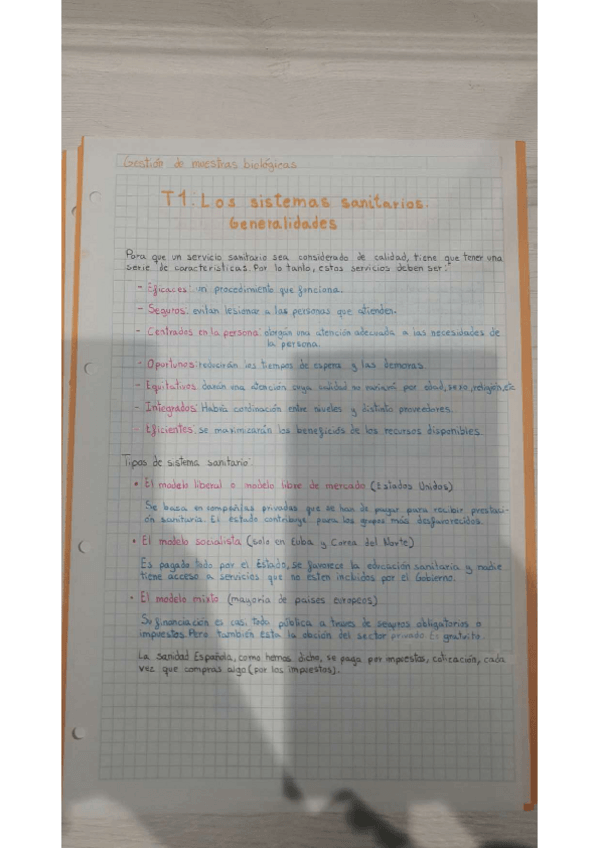 Gestión de muestras biológicas
T1: Los sistemas sanitarios:
Generalidades
Para que un servicio sanitario sea considerado de calidad, tiene que tener una
serie de características. Por lo tanto, estos servicios deben ser:
- Eficaces: un procedimiento que funciona.
- Seguros: evitan lesionar a las personas que atienden.
- Centrados en la persona: otorgan una atención adecuada a las necesidades de
la persona.
- Oportunos: reducirán los tiempos de espera y las demoras.
- Equitativos: darán una atención cuya calidad no variará por edad, sexo, religión, etc
- Integrados: Habrá cordinación entre niveles y distinto proveedores.
- Eficientes: se maximizarán los beneficios de los recursos disponibles.
Tipos de sistema sanitario:
• El modelo liberal o modelo libre de mercado (Estados Unidos)
Se basa en compañías privadas que se han de pagar para recibir prestaci-
ón sanitaria. El estado contribuye para los grupos más desfavorecidos.
• El modelo socialista (solo en Cuba y Corea del Norte)
Es pagado todo por el Estado, se favorece la educación sanitaria y nadie
tiene acceso a servicios que no esten incluidos por el Gobierno.
• El modelo mixto (mayoría de paises europeos)
Su financiación es casi toda pública a traves de seguros obligatorios o
impuestos. Pero también esta la opción del sector privado. Es gratuito.
La Sanidad Española, como hemos dicho, se paga por impuestos, cotización, cada
vez que compras algo (por los impuestos).